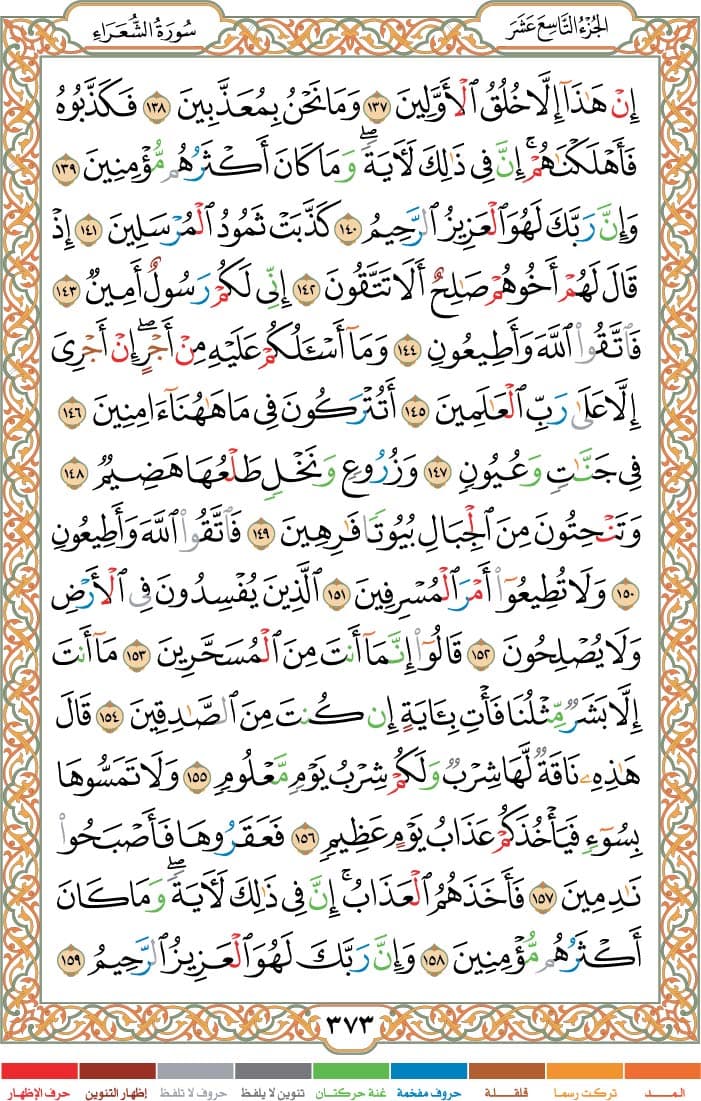 الجُزْءُ التَّاسِعَ عَشَرَ
سُورَةُ الشُّعَرَاءِ
إِنْ هَٰذَآ إِلَّا خُلُقُ ٱلْأَوَّلِينَ ١٣٧ وَمَا نَحْنُ بِمُعَذَّبِينَ ١٣٨ فَكَذَّبُوهُ
فَأَهْلَكْنَٰهُمْ ۚ إِنَّ فِى ذَٰلِكَ لَءَايَةً ۖ وَمَا كَانَ أَكْثَرُهُم مُّؤْمِنِينَ ١٣٩
وَإِنَّ رَبَّكَ لَهُوَ ٱلْعَزِيزُ ٱلرَّحِيمُ ١٤٠ كَذَّبَتْ ثَمُودُ ٱلْمُرْسَلِينَ ١٤١ إِذْ
قَالَ لَهُمْ أَخُوهُمْ صَٰلِحٌ أَلَا تَتَّقُونَ ١٤٢ إِنِّى لَكُمْ رَسُولٌ أَمِينٌ ١٤٣
فَٱتَّقُوا۟ ٱللَّهَ وَأَطِيعُونِ ١٤٤ وَمَآ أَسْـَٔلُكُمْ عَلَيْهِ مِنْ أَجْرٍ ۖ إِنْ أَجْرِىَ
إِلَّا عَلَىٰ رَبِّ ٱلْعَٰلَمِينَ ١٤٥ أَتُتْرَكُونَ فِى مَا هَٰهُنَآ ءَامِنِينَ ١٤٦
فِى جَنَّٰتٍ وَعُيُونٍ ١٤٧ وَزُرُوعٍ وَنَخْلٍ طَلْعُهَا هَضِيمٌ ١٤٨
وَتَنْحِتُونَ مِنَ ٱلْجِبَالِ بُيُوتًا فَٰرِهِينَ ١٤٩ فَٱتَّقُوا۟ ٱللَّهَ وَأَطِيعُونِ
١٥٠ وَلَا تُطِيعُوٓا۟ أَمْرَ ٱلْمُسْرِفِينَ ١٥١ ٱلَّذِينَ يُفْسِدُونَ فِى ٱلْأَرْضِ
وَلَا يُصْلِحُونَ ١٥٢ قَالُوٓا۟ إِنَّمَآ أَنتَ مِنَ ٱلْمُسَحَّرِينَ ١٥٣ مَآ أَنتَ
إِلَّا بَشَرٌ مِّثْلُنَا فَأْتِ بِـَٔايَةٍ إِن كُنتَ مِنَ ٱلصَّٰدِقِينَ ١٥٤ قَالَ
هَٰذِهِۦ نَاقَةٌ لَّهَا شِرْبٌ وَلَكُمْ شِرْبُ يَوْمٍ مَّعْلُومٍ ١٥٥ وَلَا تَمَسُّوهَا
بِسُوٓءٍ فَيَأْخُذَكُمْ عَذَابُ يَوْمٍ عَظِيمٍ ١٥٦ فَعَقَرُوهَا فَأَصْبَحُوا۟
نَٰدِمِينَ ١٥٧ فَأَخَذَهُمُ ٱلْعَذَابُ ۗ إِنَّ فِى ذَٰلِكَ لَءَايَةً ۖ وَمَا كَانَ
أَكْثَرُهُم مُّؤْمِنِينَ ١٥٨ وَإِنَّ رَبَّكَ لَهُوَ ٱلْعَزِيزُ ٱلرَّحِيمُ ١٥٩
٣٧٣
المــــد تركت رسما قلقـــلة حروف مفخمة غنة حركتان تنوين لا يلفظ حروف لا تلفظ إظهار التنوين حرف الإظهار